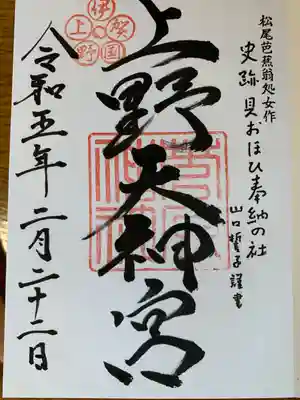 松尾芭蕉翁処女作
史跡 貝おほひ奉納の社
山口誓子謹書
伊賀国
上野
上野天神宮
令和五年二月二十二日